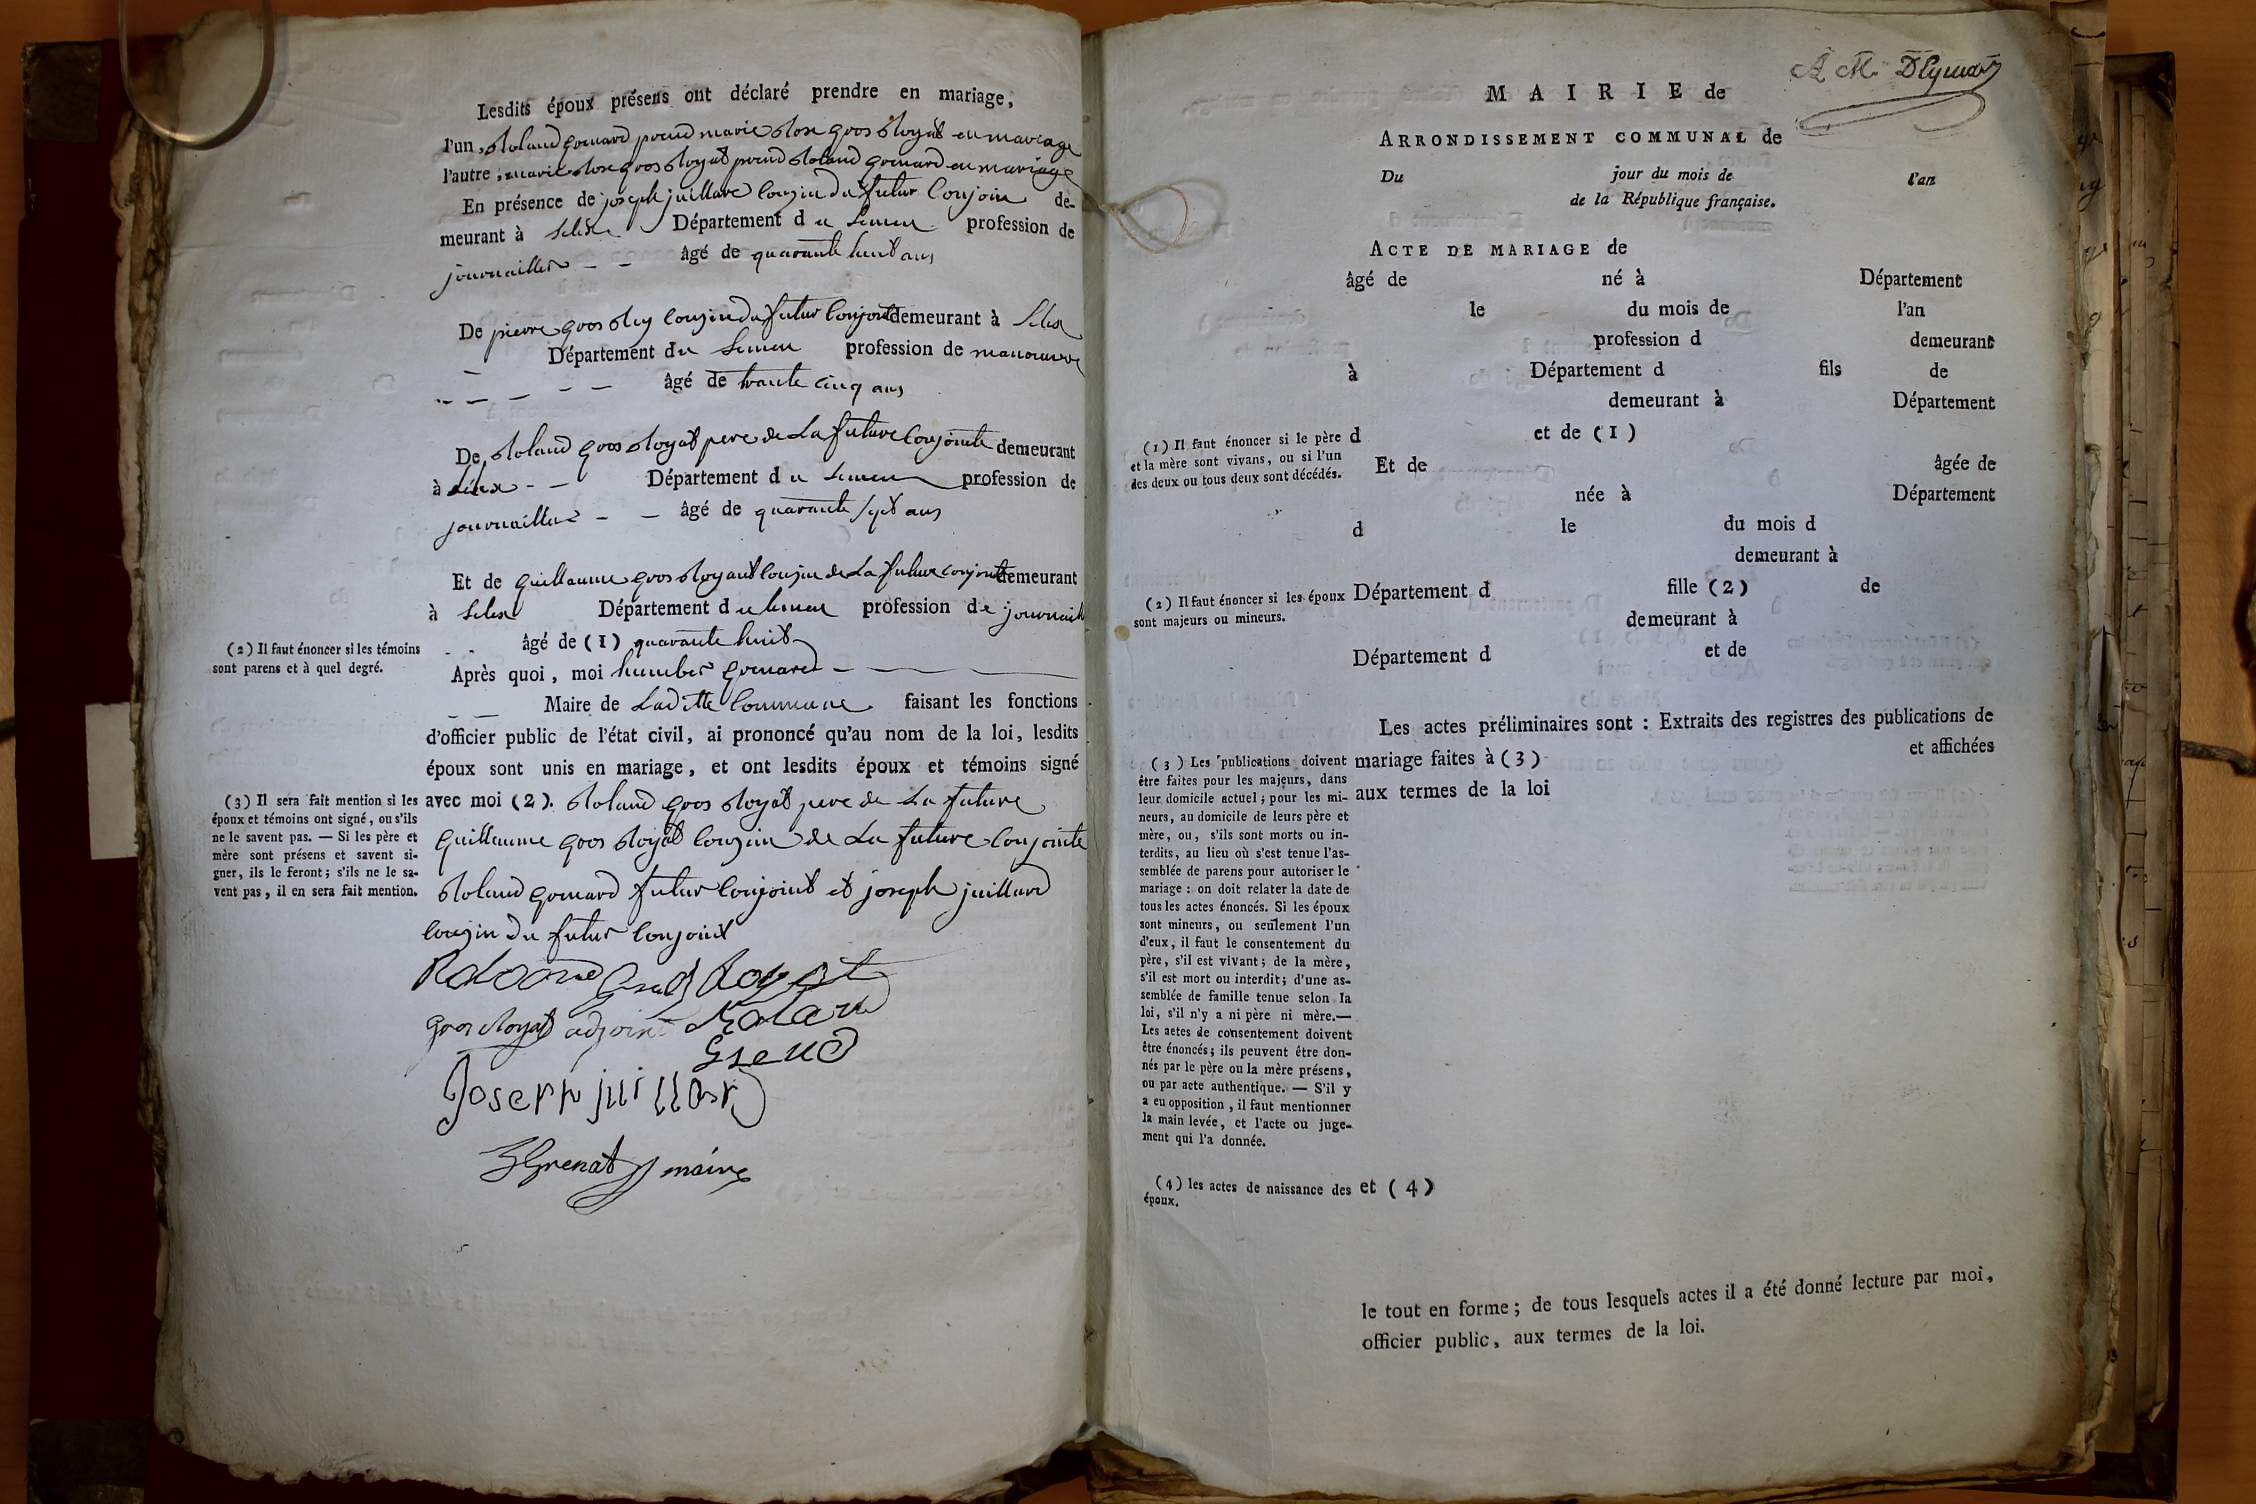 Lesdits époux présens ont déclaré prendre en mariage,
l'un, Roland grenard prend marie Rose gros Royat en mariage
l'autre, marie Rose gros Royat prend Roland grenard en mariage
En présence de joseph juillard cousin du futur Conjoin de-
meurant à Département du Leman profession de
journaillier — — âgé de quarante huit ans
De pierre gros cousin du futur Conjoint demeurant à
Département du Leman profession de manouvre
— — — — — âgé de trante cinq ans
De Roland gros Royat pere de La future Conjointe demeurant
à - - Département du Leman profession de
journaillier — — âgé de quarante sept ans
Et de guillaume gros Royat cousin de La future conjointe demeurant
à Département du Leman profession de journaill
- - âgé de (1) quarante huit
Après quoi, moi humber grenard —
— — Maire de Laditte Commune faisant les fonctions
d'officier public de l'état civil, ai prononcé qu'au nom de la loi, lesdits
époux sont unis en mariage, et ont lesdits époux et témoins signé
avec moi (2). Roland gros Royat pere de La future
guillaume gros Royat cousin de La future Conjointe
Roland grenard futur Conjoint et joseph juillard
cousin du futur conjoint
Royat
gros Royat adjoint
Joseph juillar
Grenat maire
(2) Il faut énoncer si les témoins
sont parens et à quel degré.
(3) Il sera fait mention si les
époux et témoins ont signé, ou s'ils
ne le savent pas. — Si les père et
mère sont présens et savent si-
gner, ils le feront; s'ils ne le sa-
vent pas, il en sera fait mention.
MAIRIE de
ARRONDISSEMENT COMMUNAL de
Du jour du mois de l'an
de la République française.
ACTE DE MARIAGE de
âgé de né à Département
le du mois de l'an
profession d demeurant
à Département d fils de
demeurant à Département
d et de (1)
Et de âgée de
née à Département
d le du mois d
demeurant à
Département d fille (2) de
demeurant à
Département d et de
Les actes préliminaires sont : Extraits des registres des publications de
mariage faites à (3) et affichées
aux termes de la loi
et (4)
le tout en forme; de tous lesquels actes il a été donné lecture par moi,
officier public, aux termes de la loi.
(1) Il faut énoncer si le père
et la mère sont vivans, ou si l'un
des deux ou tous deux sont décédés.
(2) Il faut énoncer si les époux
sont majeurs ou mineurs.
(3) Les publications doivent
être faites pour les majeurs, dans
leur domicile actuel; pour les mi-
neurs, au domicile de leurs père et
mère, ou, s'ils sont morts ou in-
terdits, au lieu où s'est tenue l'as-
semblée de parens pour autoriser le
mariage : on doit relater la date de
tous les actes énoncés. Si les époux
sont mineurs, ou seulement l'un
d'eux, il faut le consentement du
père, s'il est vivant; de la mère,
s'il est mort ou interdit; d'une as-
semblée de famille tenue selon la
loi, s'il n'y a ni père ni mère.—
Les actes de consentement doivent
être énoncés; ils peuvent être don-
nés par le père ou la mère présens,
ou par acte authentique. — S'il y
a eu opposition, il faut mentionner
la main levée, et l'acte ou juge-
ment qui l'a donnée.
(4) les actes de naissance des
époux.